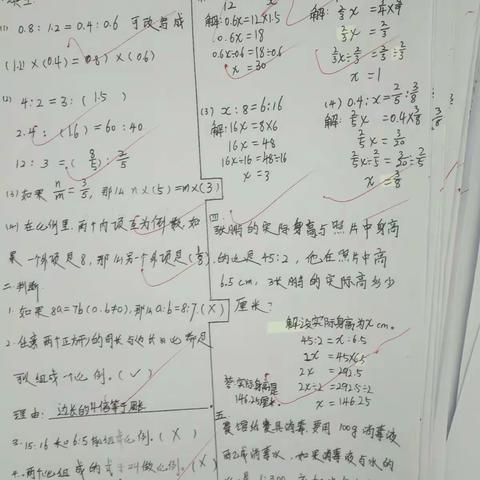 (1) 0.8:1.2=0.4:0.6 可改写成
(1.2)×(0.4)=(0.8)×(0.6)
(2) 4:2=3:(1.5)
2.4:(1.6)=60:40
12:3=(8/5):2/5
(3)如果 n/m=3/5,那么n×(5)=m×(3)
(4)在比例里,两个内项互为倒数,如
果一个外项是8,那么另一个外项是(1/8).
二.判断
1.如果8a=7b(a.b≠0),那么a:b=8:7.(×)
2.任意两个正方形的周长与边长的比都是
可以组成一个比例。(✓)
理由:边长的4倍等于周长
3.15:16和6:5能组成比例.(×)
4.两个比组成的式子叫做比例.(×)
解:0.6x=12×1.5
0.6x=18
0.6x÷0.6=18÷0.6
x=30
2/3x÷2/3=2/3÷2/3
x=1
(3) x:8=6:16
解:16x=8×6
16x=48
16x÷16=48÷16
x=3
(4) 0.4:x=2/5:3/8
解:2/5x=0.4×3/8
2/5x=3/20
2/5x÷2/5=3/20÷2/5
x=3/8
四.
张鹏的实际身高与照片中身高
的比是45:2,他在照片中高
6.5cm,张鹏的实际高多少
厘米?
解:设实际身高为xcm。
45:2=x:6.5
2x=45×6.5
2x=292.5
2x÷2=292.5÷2
x=146.25
答:实际身高是
146.25厘米.
五.
要用100g消毒液